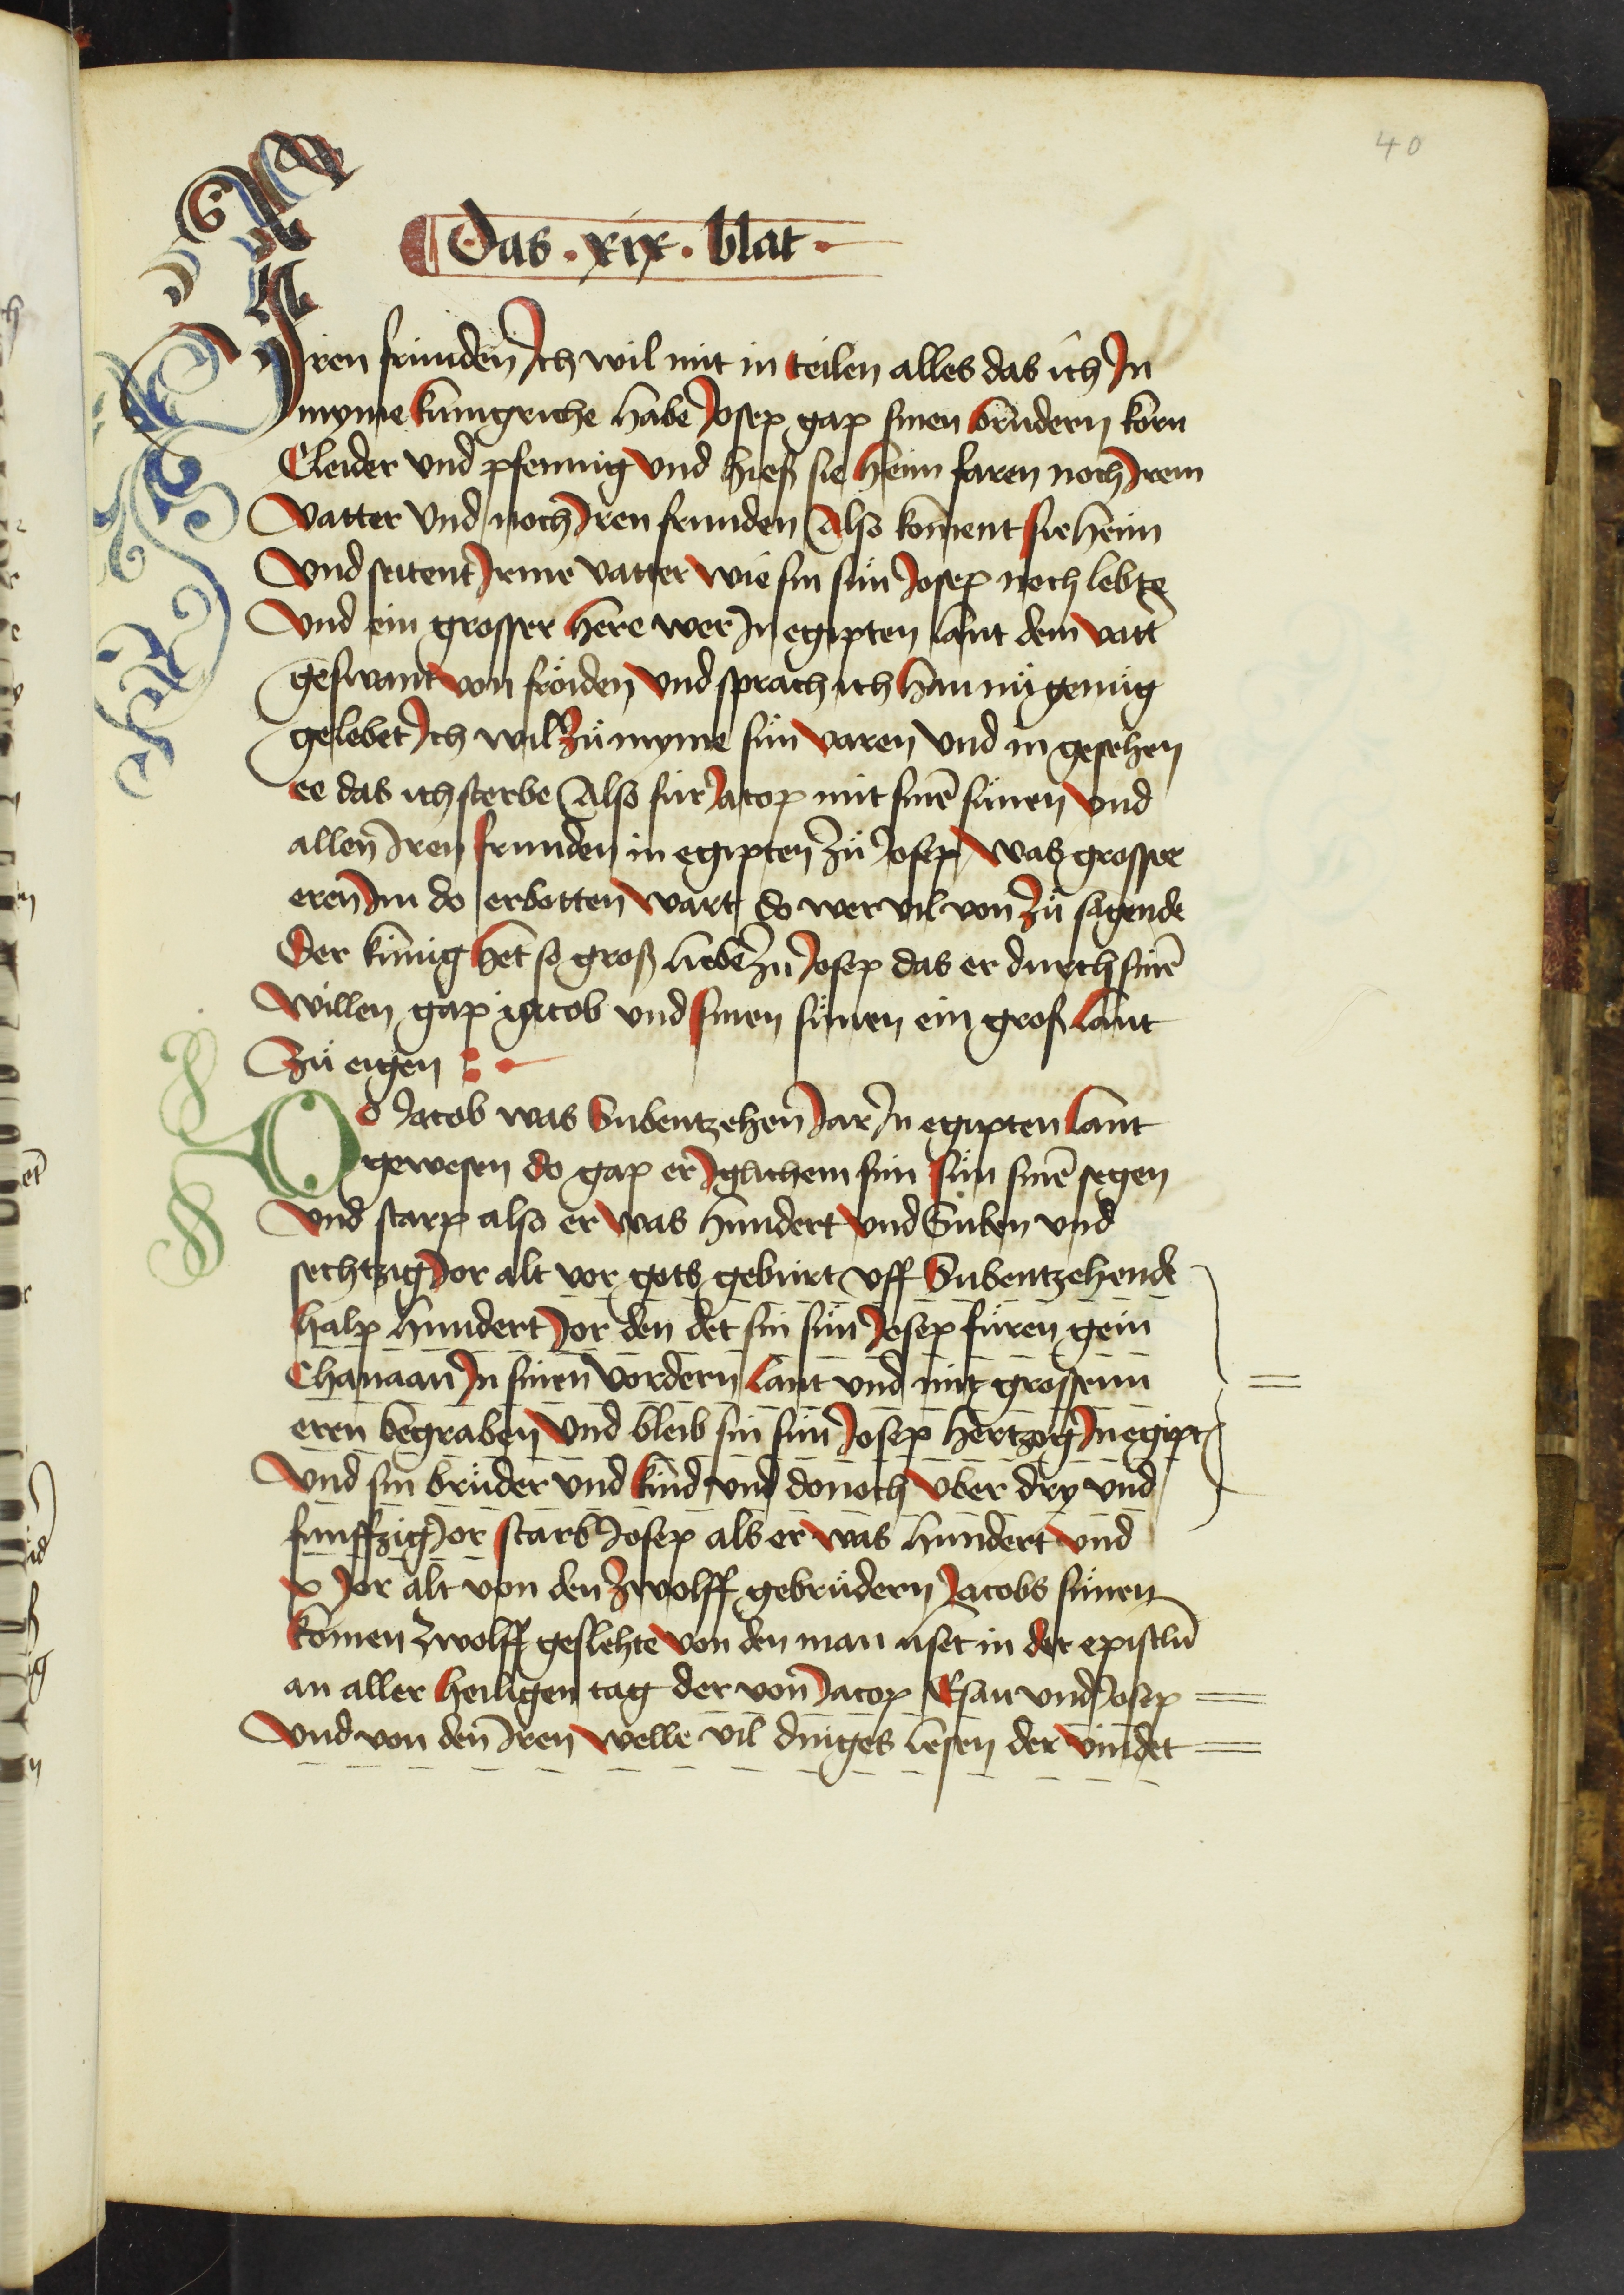 40
Das . xix . blat .
Iren frunden Ich wil mit in teilen alles das ich In
myme kunigriche habe Josep gap sinen brudern korn
Cleider vnd pfennig vnd hieß sie heim faren noch Irem
vatter vnd noch Iren frunden Also koment sie heim
vnd seitent Irme vatter wie sin sün Josep noch lebte
vnd ein grosser here wer In egipten lant dem vatt
geswant von fröiden vnd sprach ich han nü genüg
gelebet Ich wil zü myme sün varen vnd in gesehen
ee das ich sterbe Also für Jacop mit sinē sünen vnd
allen Iren frunden in egipten zü Josep was grosser
eren Im do erbotten wart do wer vil von zü sagende
Der künig het so groß liebe zü Josep das er durch sinē
willen gap iacob vnd sinen sünen ein groß lant
zü eigen :
Do Jacob was Subentzehen Jar In egipten lant
gewesen do gap er Iglichem sim sün sinē segen
vnd starp also er was hundert vnd Suben vnd
sechtzig Jor alt vor gots geburt vff Subentzehende
halp hundert Jor den det sin sün Josep füren gein
Chanaan In sinen vordern lant vnd mit grossenn
eren begraben vnd bleib sin sün Josep hertzog In egipt
vnd sin brüder vnd kind vnd donoch vber dry vnd
funffzig Jor starb Josep als er was hundert vnd
x Jor alt von den zwolff gebrüdern Jacobs sünen
komen zwolff geslehte von den man liset in der epistlē
an aller heiligen tag der von Jacop Esau vnd Josep
vnd von den Iren welle vil dinges lesen der vindet